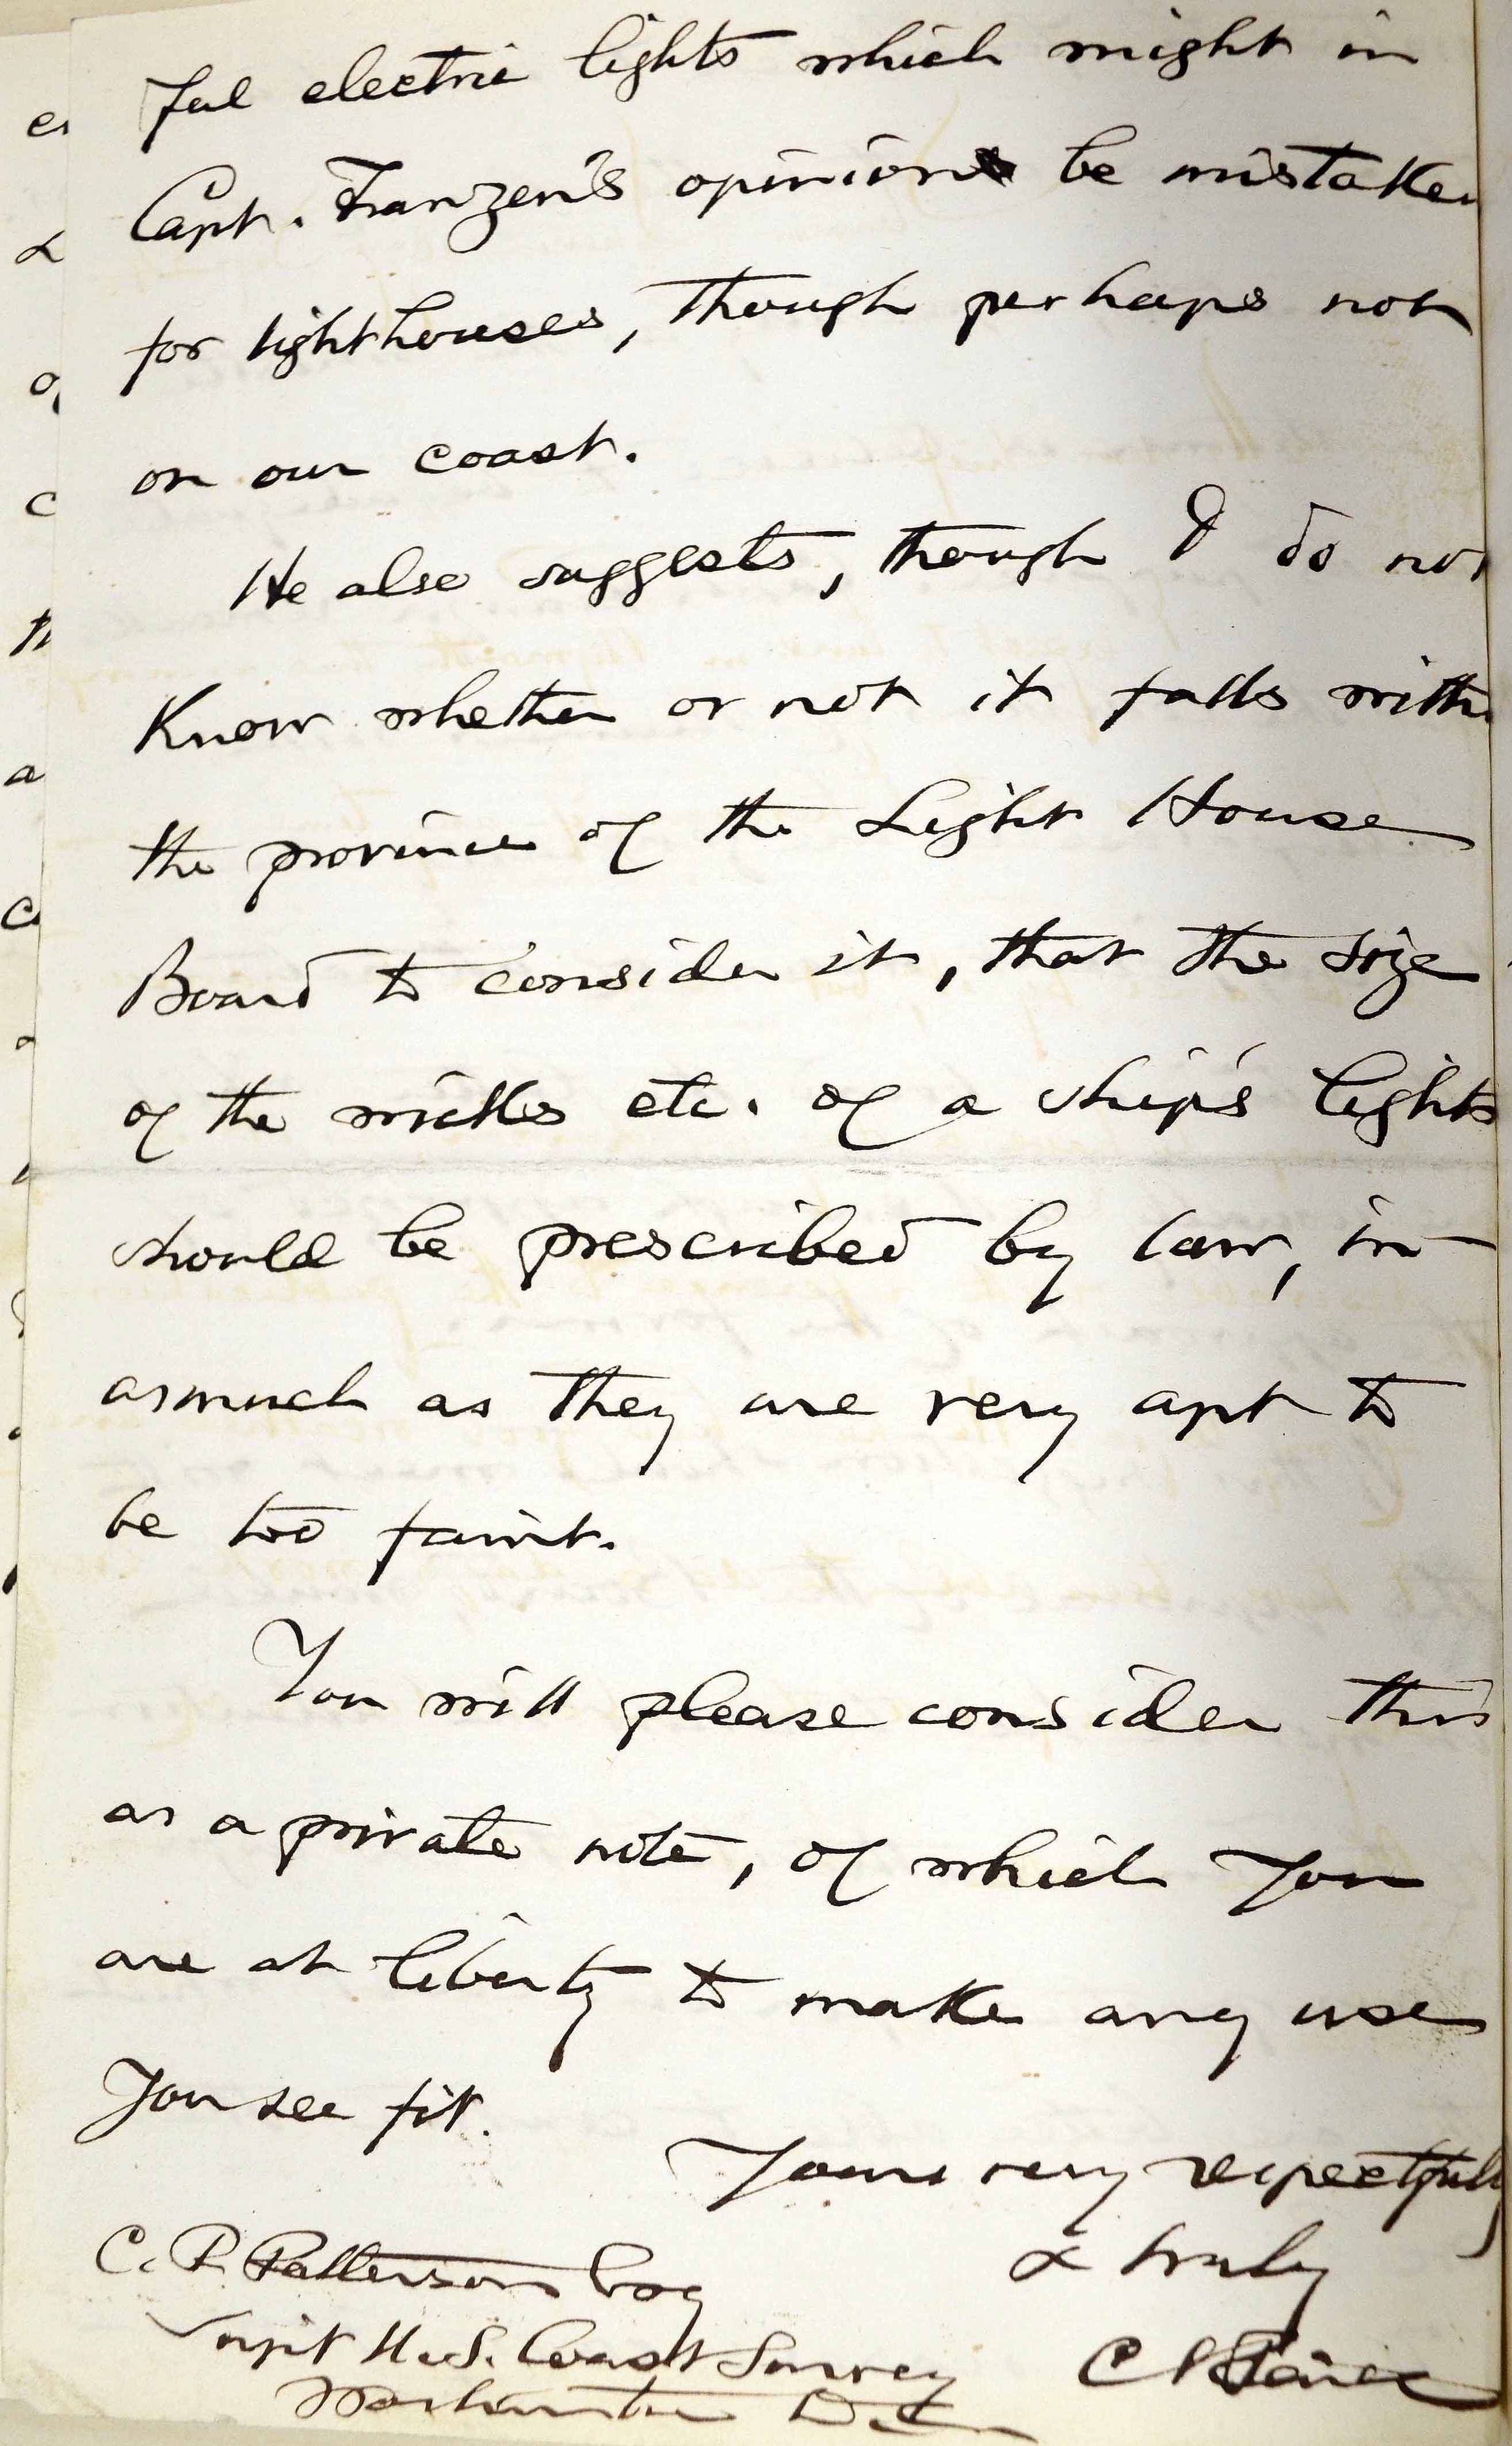 ful electric lights which might in
Capt. Franzen's opinion be mistaken
for lighthouses, though perhaps not
on our coast.
He also suggests, though I do not
know whether or not it falls within
the province of the Light House
Board to consider it, that the size
of the wicks etc. of a ship's lights
should be prescribed by law, in-
asmuch as they are very apt to
be too faint.
You will please consider this
as a private note, of which you
are at liberty to make any use
you see fit.
Yours very respectfully
& truly
C. P. Patterson Esq
Supt U.S. Coast Survey
Washington D.C.
C S Peirce